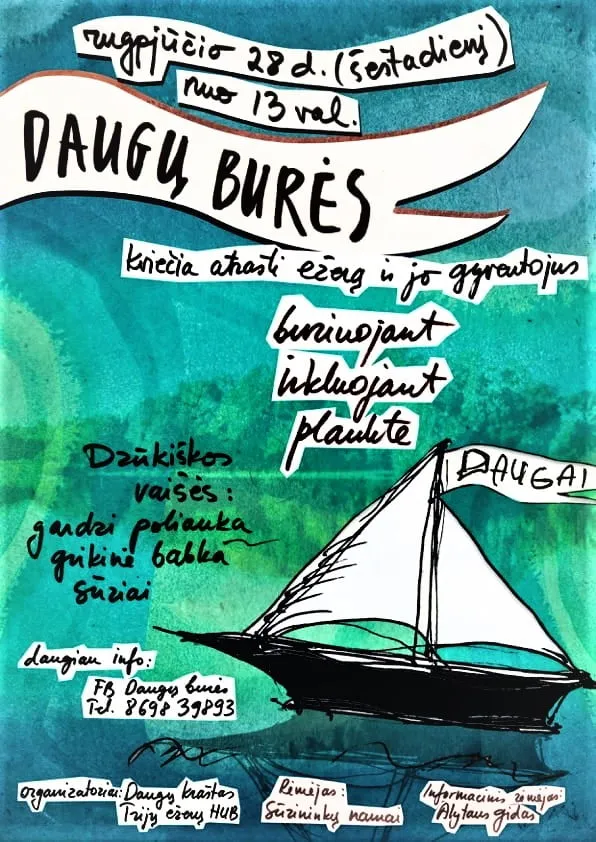 rugpjūčio 28 d. (šeštadienį)
nuo 13 val.
DAUGŲ BURĖS
kviečia atrasti ežerą ir jo gyventojus
buriuojant
irkluojant
plaukte
DAUGAI
Dzūkiškos
vaišės:
gardzi poliauka
grikinė babka
sūriai
daugiau info:
FB Daugų burės
Tel. 8698 39893
organizatoriai: Daugų kraštas
Trijų ežerų HUB
Rėmėjas:
Sūrininkų namai
Informacinis rėmėjas:
Alytaus gidas